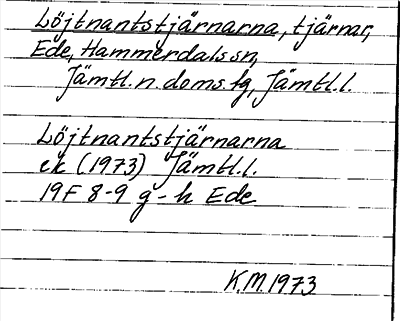 Löjtnantstjärnarna, tjärnar,
Ede, Hammerdals sn,
Jämtl. n. doms. tg, Jämtl. l.
Löjtnantstjärnarna
ek (1973) Jämtl. l.
19F 8-9 g-h Ede
K.M 1973